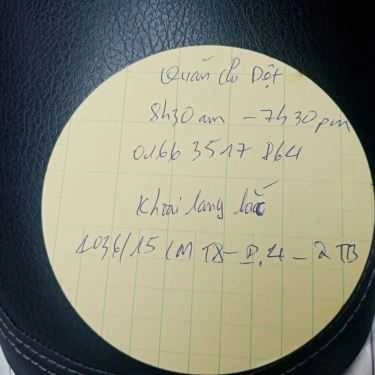 Quán Chị Dột
8h30 am - 7h30 pm
0166 3517 864
Khoai lang lắc
1036/15 CM T8 - P.4 - Q TB